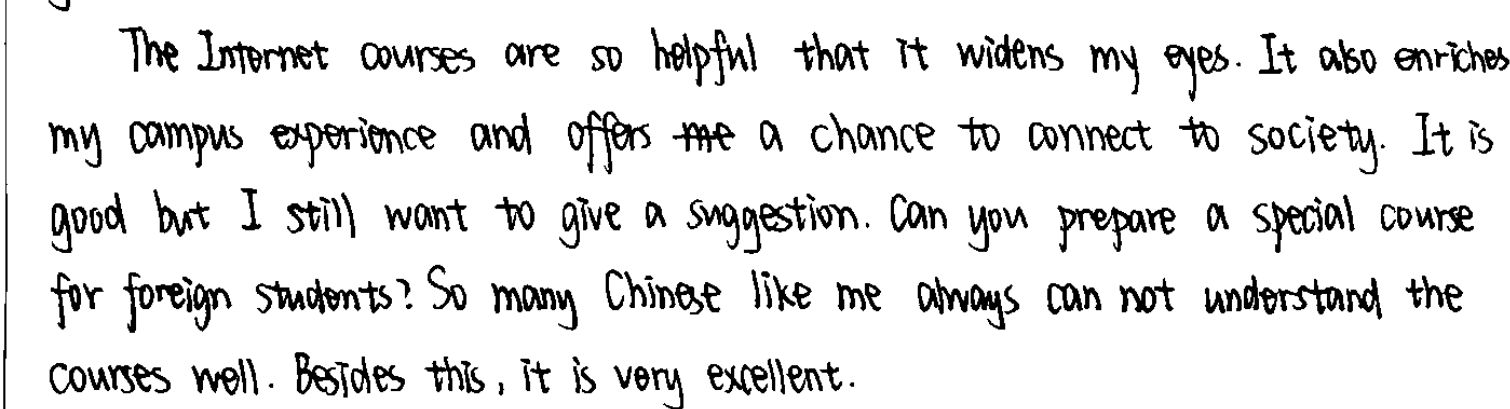 The Internet courses are so helpful that it widens my eyes. It also enriches
my campus experience and offers me a chance to connect to society. It is
good but I still want to give a suggestion. Can you prepare a special course
for foreign students? So many Chinese like me always can not understand the
courses well. Besides this, it is very excellent.